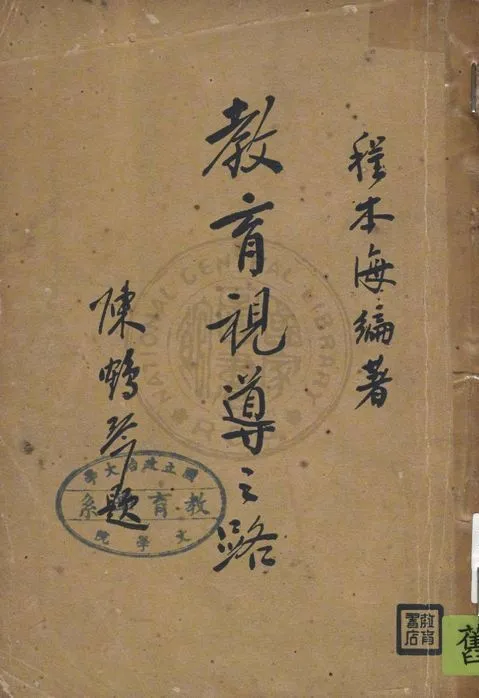 程本海編著
教育視導之路
陳鶴琴題
NATIONAL CENTRAL LIBRARY
國立政治大學
教育系
文學院
教育書店
舊